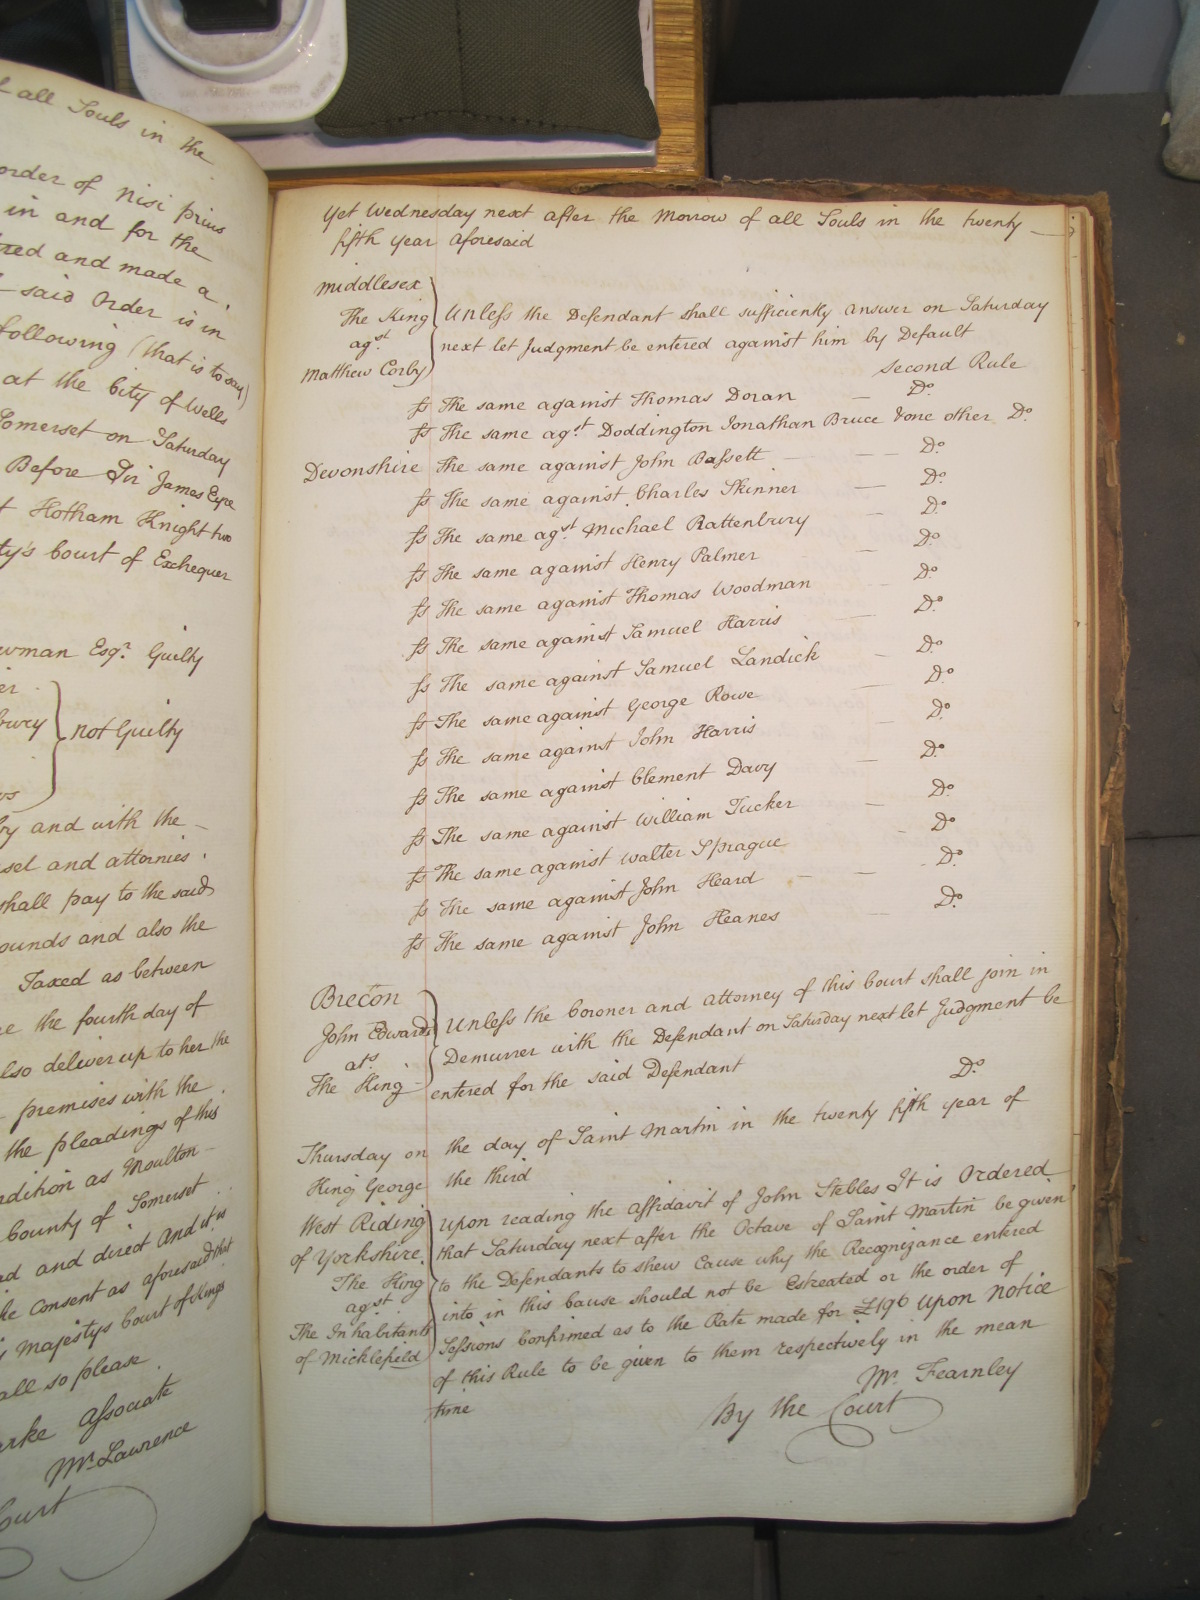 all Souls in the
order of Nisi prius
in and for the
and made a
said Order is in
following (that is to say)
at the City of Wells
Somerset on Saturday
Before Sir James Eyre
Hotham Knight two
Court of Exchequer
Esqr. Guilty
not Guilty
and with the
and attornies.
shall pay to the said
and also the
Taxed as between
the fourth day of
deliver up to her the
premises with the
the pleadings of this
as Moulton
County of Somerset
and direct And it is
Consent as aforesaid that
Majestys Court of Kings
all so please.
Associate
Mr. Lawrence
Court
Yet Wednesday next after the Morrow of all Souls in the twenty
fifth year aforesaid
Middlesex
The King
agst.
Matthew Corby
Unless the Defendant shall sufficiently answer on Saturday
next let Judgment be entered against him by Default
Second Rule
ss The same against Thomas Doran — Do.
ss The same agst. Doddington Jonathan Bruce & one other Do.
Devonshire The same against John Bassett — Do.
ss The same against Charles Skinner — Do.
ss The same agst. Michael Rattenbury — Do.
ss The same against Henry Palmer — Do.
ss The same against Thomas Woodman — Do.
ss The same against Samuel Harris — Do.
ss The same against Samuel Landick — Do.
ss The same against George Rowe — Do.
ss The same against John Harris Do.
ss The same against Clement Davy — Do.
ss The same against William Tucker — Do.
ss The same against Walter Sprague - Do.
ss The same against John Heard — Do.
ss The same against John Heanes — Do.
Brecon
John Edwards
ats.
The King
Unless the Coroner and Attorney of this Court shall join in
Demurrer with the Defendant on Saturday next let Judgment be
entered for the said Defendant Do.
Thursday on the day of Saint Martin in the twenty fifth year of
King George the third
West Riding
of Yorkshire.
The King
agst.
The Inhabitants
of Micklefield
Upon reading the Affidavit of John Stebles It is Ordered
that Saturday next after the Octave of Saint Martin be given
to the Defendants to shew Cause why the Recognizance entered
into in this Cause should not be Estreated or the order of
Sessions Confirmed as to the Rate made for £196 Upon Notice
of this Rule to be given to them respectively in the mean
time
Mr. Fearnley
By the Court